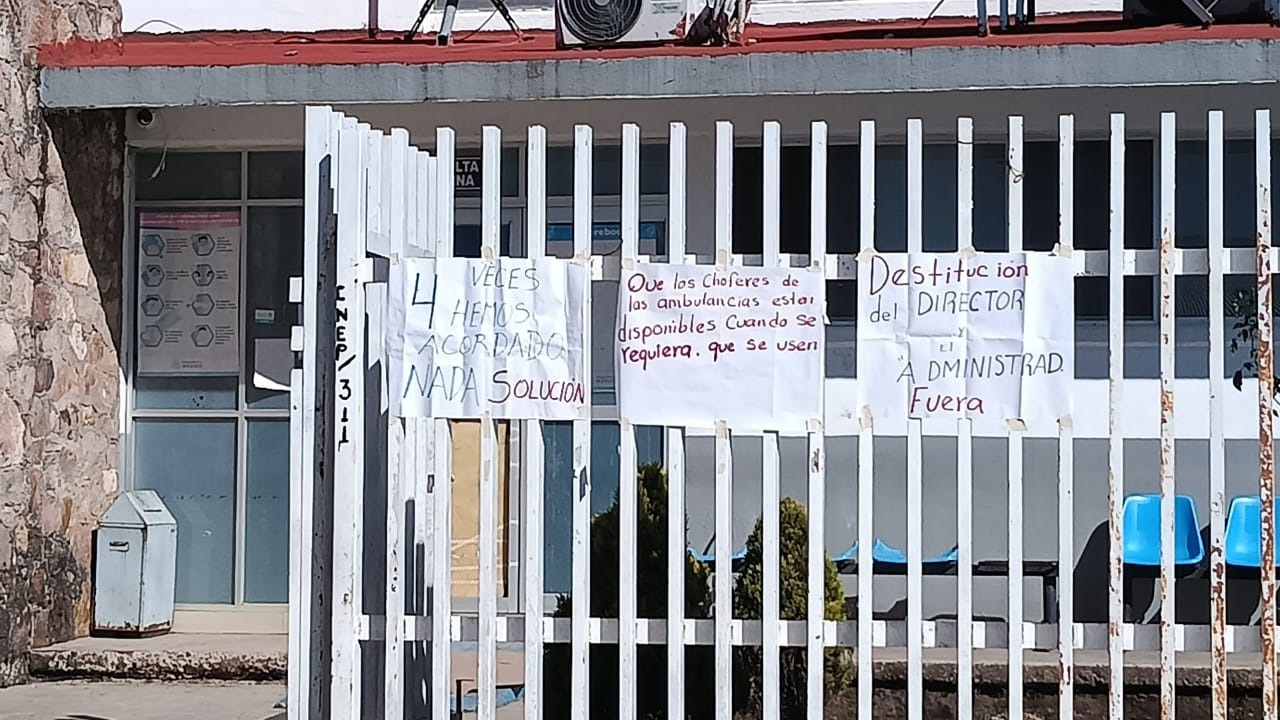 LTA
NA
INEP/311
4 VECES
HEMOS
ACORDADO
NADA SOLUCIÓN
Que los Choferes de
las ambulancias estar
disponibles Cuando se
requiera. que se usen
Destitución
del DIRECTOR
y
El
ADMINISTRAD.
Fuera